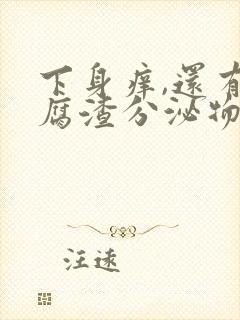 下身痒,還有
腐渣分泌物
汪遠